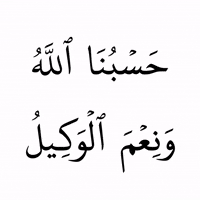 حَسْبُنَا ٱللَّهُ
وَنِعْمَ ٱلْوَكِيلُ